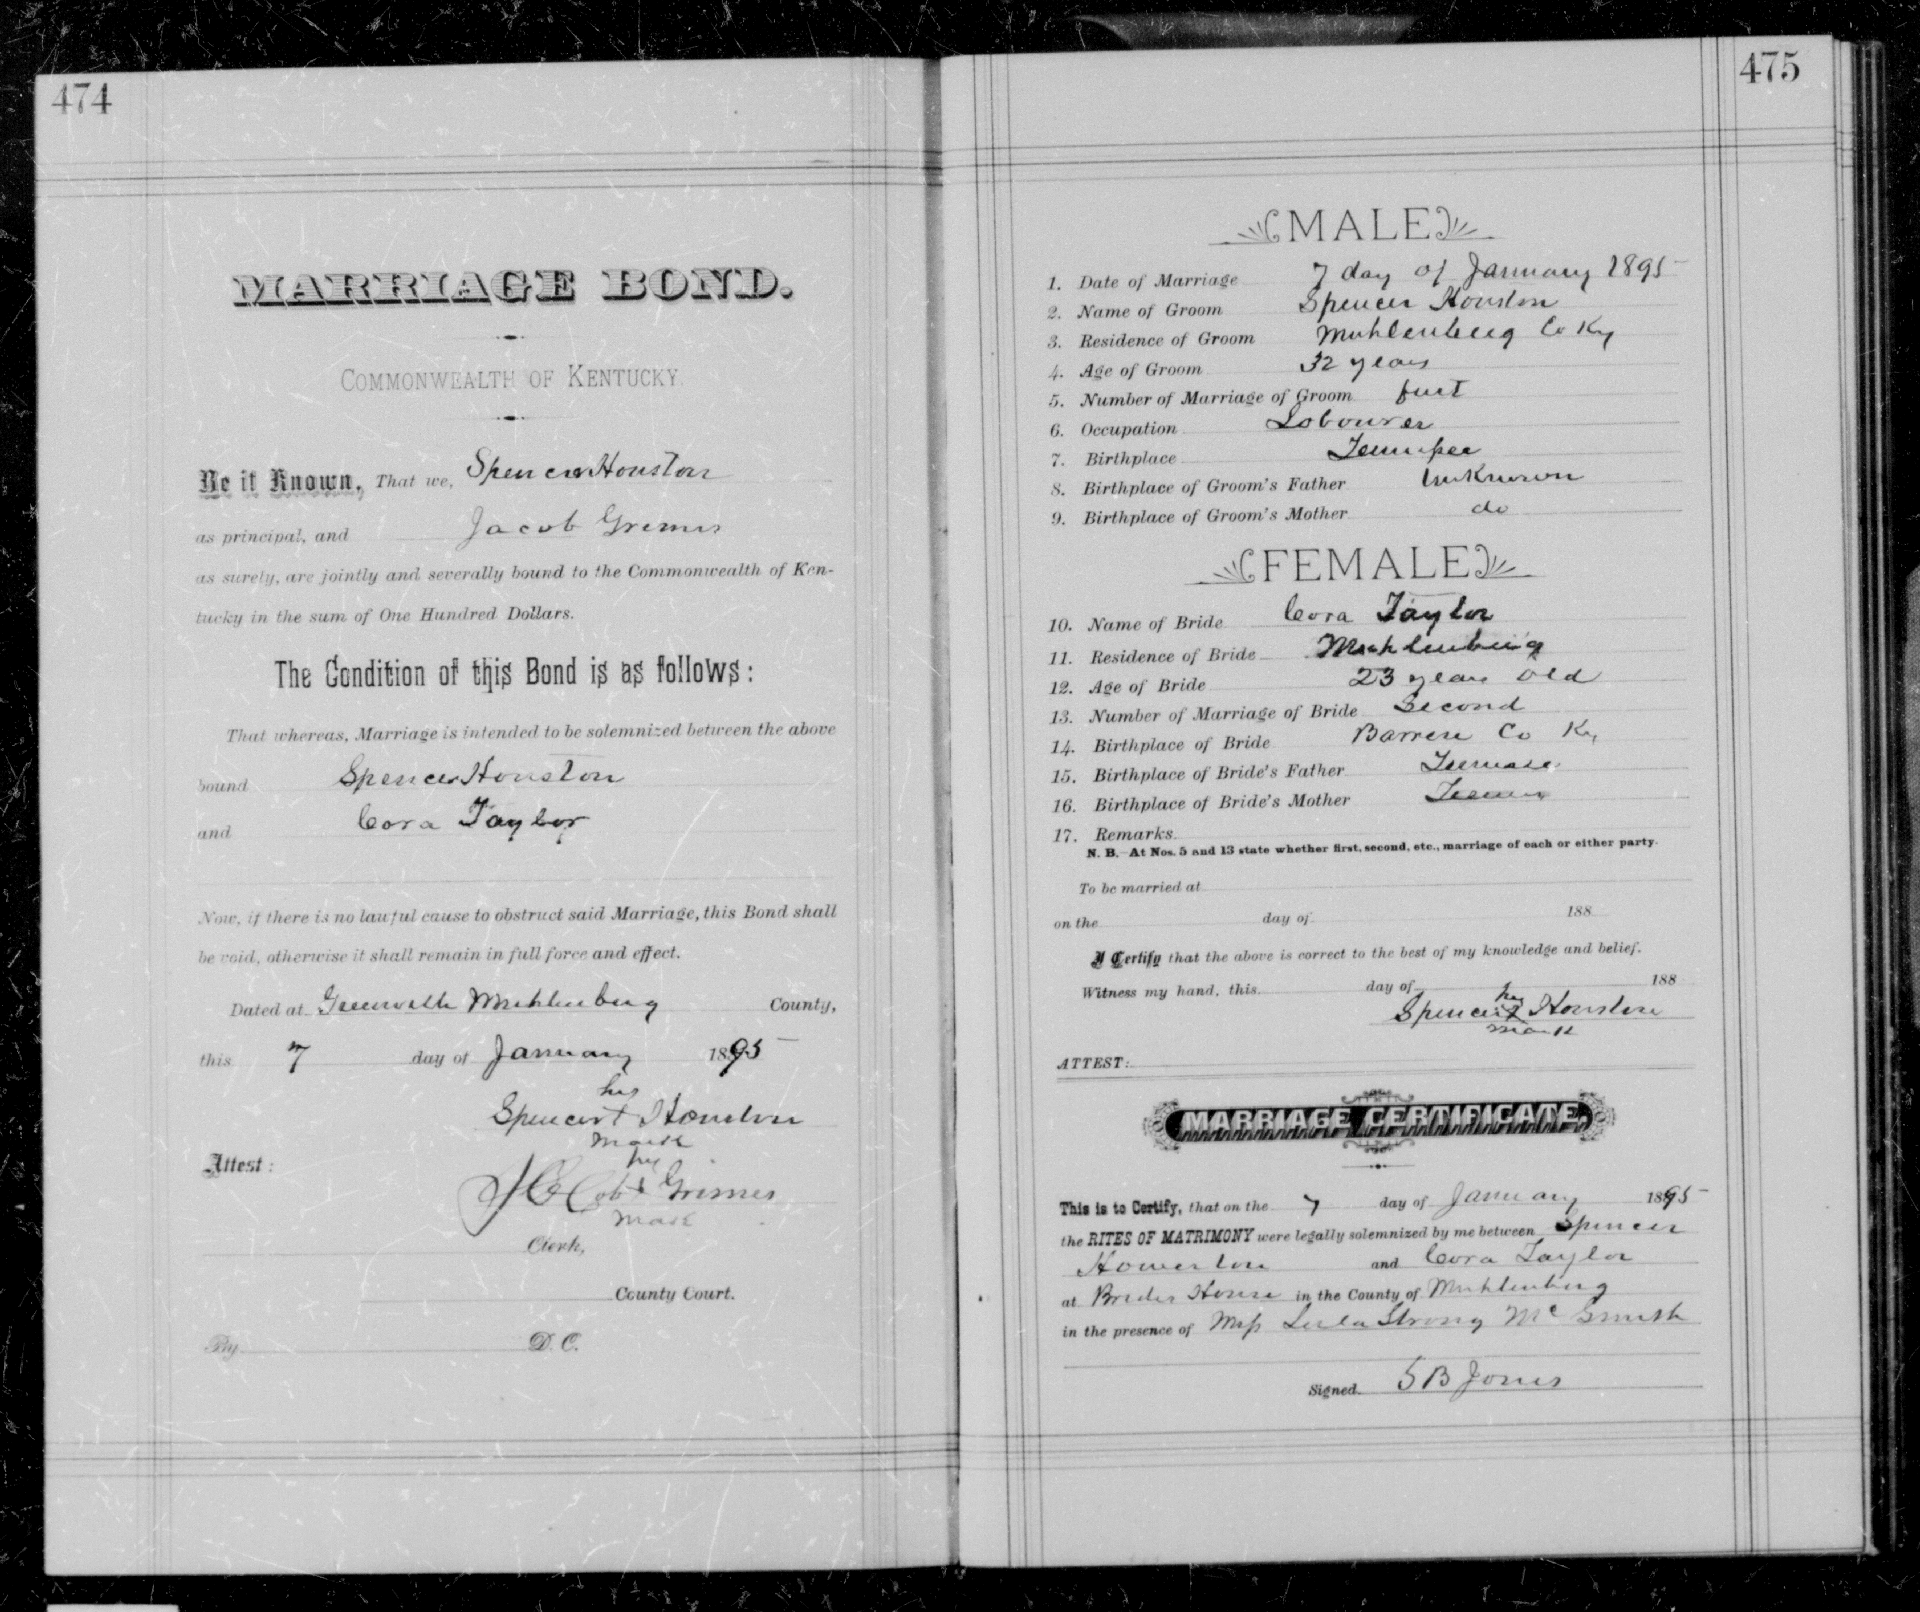 474
MARRIAGE BOND.
COMMONWEALTH OF KENTUCKY.
Be it Known, That we, Spencer Houston
as principal, and Jacob Grimes
as surety, are jointly and severally bound to the Commonwealth of Ken-
tucky in the sum of One Hundred Dollars.
The Condition of this Bond is as follows:
That whereas, Marriage is intended to be solemnized between the above
bound Spencer Houston
and Cora Taylor
Now, if there is no lawful cause to obstruct said Marriage, this Bond shall
be void, otherwise it shall remain in full force and effect.
Dated at Greenville Muhlenberg County,
this 7 day of January 1895
his
Spencer + Houston
mark
Attest: his
Grimes
mark
Clerk,
County Court.
By D. C.
475
MALE
1. Date of Marriage 7 day of January 1895
2. Name of Groom Spencer Houston
3. Residence of Groom Muhlenberg Co Ky
4. Age of Groom 32 years
5. Number of Marriage of Groom first
6. Occupation Labourer
7. Birthplace Tennessee
8. Birthplace of Groom's Father Unknown
9. Birthplace of Groom's Mother do
FEMALE
10. Name of Bride Cora Taylor
11. Residence of Bride Muhlenberg
12. Age of Bride 23 years old
13. Number of Marriage of Bride Second
14. Birthplace of Bride Barren Co Ky
15. Birthplace of Bride's Father
16. Birthplace of Bride's Mother
17. Remarks
N. B. At Nos. 5 and 13 state whether first, second, etc., marriage of each or either party.
To be married at
on the day of 188
I Certify that the above is correct to the best of my knowledge and belief.
Witness my hand, this day of 188
his
Spencer X Houston
mark
ATTEST:
MARRIAGE CERTIFICATE.
This is to Certify, that on the 7 day of January 1895
the RITES OF MATRIMONY were legally solemnized by me between Spencer
Howerton and Cora Taylor
at Brides House in the County of Muhlenberg
in the presence of Miss Lula Strong Mc Smith
Signed S B Jones